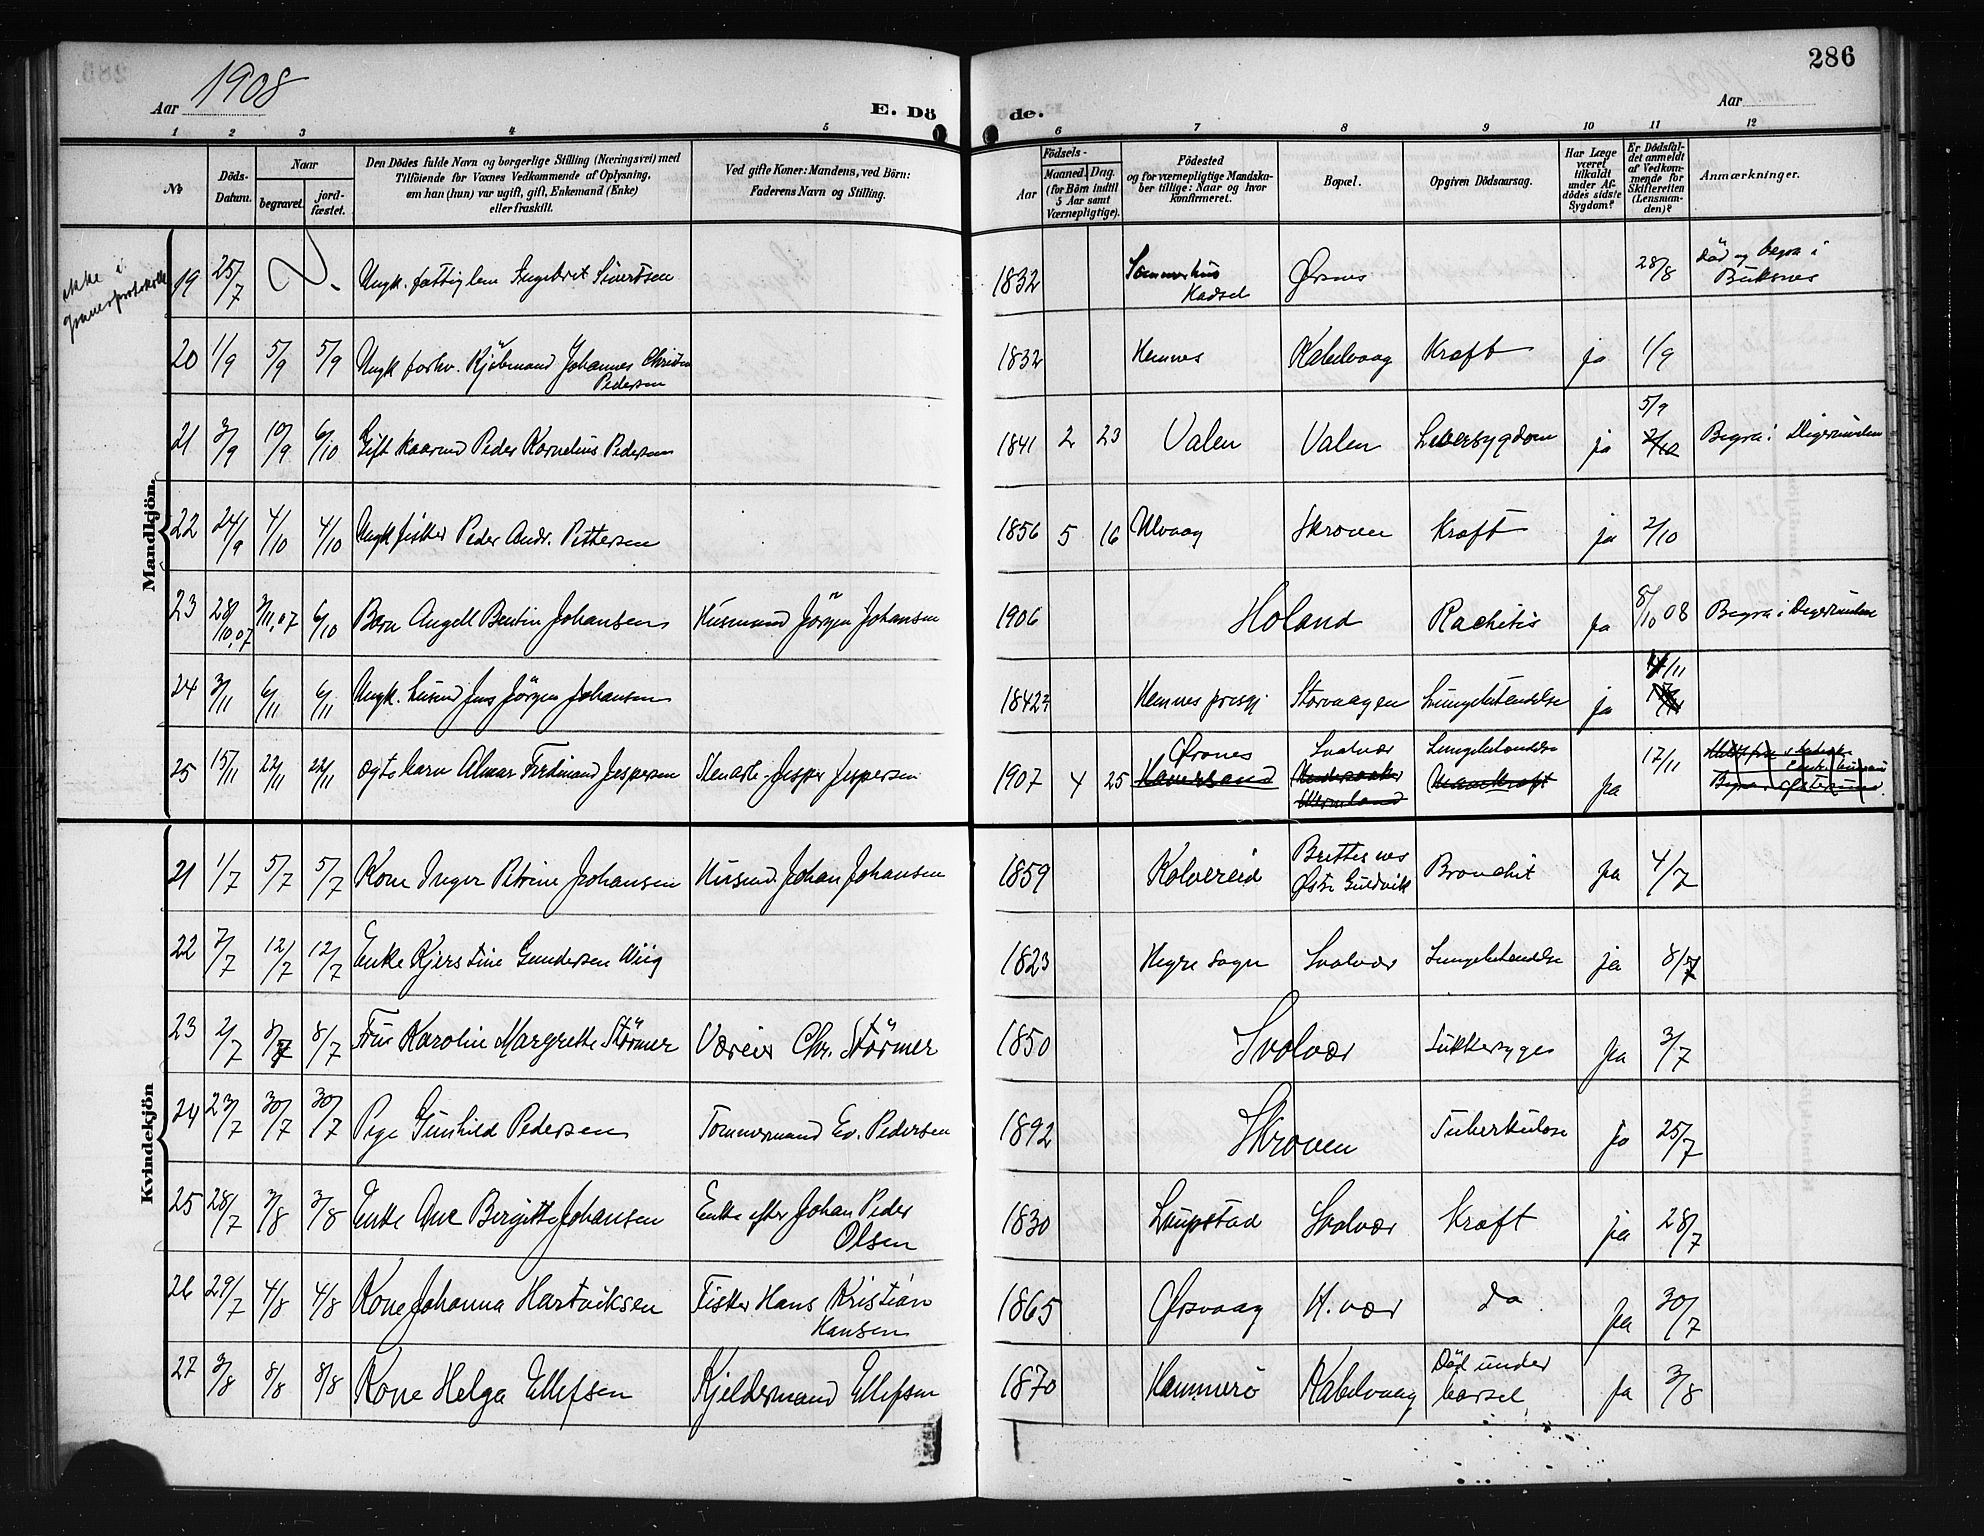 286
Aar 1908
E. Dö
de.
Aar
1 2 3 4 5 6 7 8 9 10 11 12
No
Döds-
Datum.
Naar
begravet.
jord-
fæstet.
Den Dödes fulde Navn og borgerlige Stilling (Næringsvei) med
Tilföiende for Voxnes Vedkommende af Oplysning,
om han (hun) var ugift, gift, Enkemand (Enke)
eller fraskilt.
Ved gifte Koner: Mandens, ved Börn:
Faderens Navn og Stilling.
Födsels-
Aar
Maaned. Dag.
(for Börn indtil
5 Aar samt
Værnepligtige).
Födested
og for værnepligtige Mandska-
ber tillige: Naar og hvor
konfirmeret.
Bopæl.
Opgiven Dödsaarsag.
Har Læge
været
tilkaldt
under Af-
dödes sidste
Sygdom?
Er Dödsfal-
det anmeldt
af Vedkom-
mende for
Skifteretten
(Lensman-
den)?
Anmærkninger.
ikke i
Mandkjön.
19 25/7 Ungk. fattiglem Engebret Sivertsen 1832 Sommerhus Hadsel Ørsnes 28/8 död og begra i Buksnes
20 1/9 5/9 5/9 Ungk forhv. Kjöbmand Johannes Christian Pedersen 1832 Hemnes Kabelvaag Kræft ja 1/9
21 3/9 10/9 6/10 Gift kaarmd Peder Kornelius Pedersen 1841 2 23 Valen Valen Leversygdom ja 5/9 2/10 Begra i Digermulen
22 24/9 4/10 4/10 Ungk fisker Peder Andr. Pettersen 1856 5 16 Ulvaag Skroven Kræft ja 2/10
23 28/10.07 3/11.07 6/10 Barn Angell Bentin Johansen Husmand Jörgen Johansen 1906 Holand Rachitis ja 8/10 08 Begra i Digermulen
24 3/11 6/11 6/11 Ungk. husmd Jens Jörgen Johansen 1842 Hemnes presgj Storvaagen Lungebetendelse ja 4/11
25 15/11 22/11 22/11 ægte barn Almar Ferdinand Jespersen Stenarb. Jesper Jespersen 1907 4 25 Ørsnes Svolvær Lungebetendelse ja 17/11
Kvindekjön
21 1/7 5/7 5/7 Kone Inger Petrine Johansen Husmd. Johan Johansen 1859 Kolvereid Brettesnes Østre Guldvik Bronchit ja 4/7
22 7/7 12/7 12/7 Enke Kjerstine Gundersen Wiig 1823 Hegre sogn Svolvær Lungebetendelse ja 8/7
23 2/7 8/7 8/7 Fru Karolin Margrethe Störmer Væreier Chr. Störmer 1850 Svolvær Sukkersyge ja 3/7
24 23/7 30/7 30/7 Pige Gunhild Pedersen Tommermand Ev. Pedersen 1892 Skroven Tuberkulose ja 25/7
25 28/7 3/8 3/8 Enke Ane Birgitte Johansen Enke efter Johan Peder Olsen 1830 Laupstad Svolvær Kræft ja 28/7
26 29/7 4/8 4/8 Kone Johanna Hartviksen Fisker Hans Kristian Hansen 1865 Ørsvaag H.vær do ja 30/7
27 3/8 8/8 8/8 Kone Helga Ellefsen Kjeldermand Ellefsen 1870 Hammerö Kabelvaag Död under barsel ja 3/8